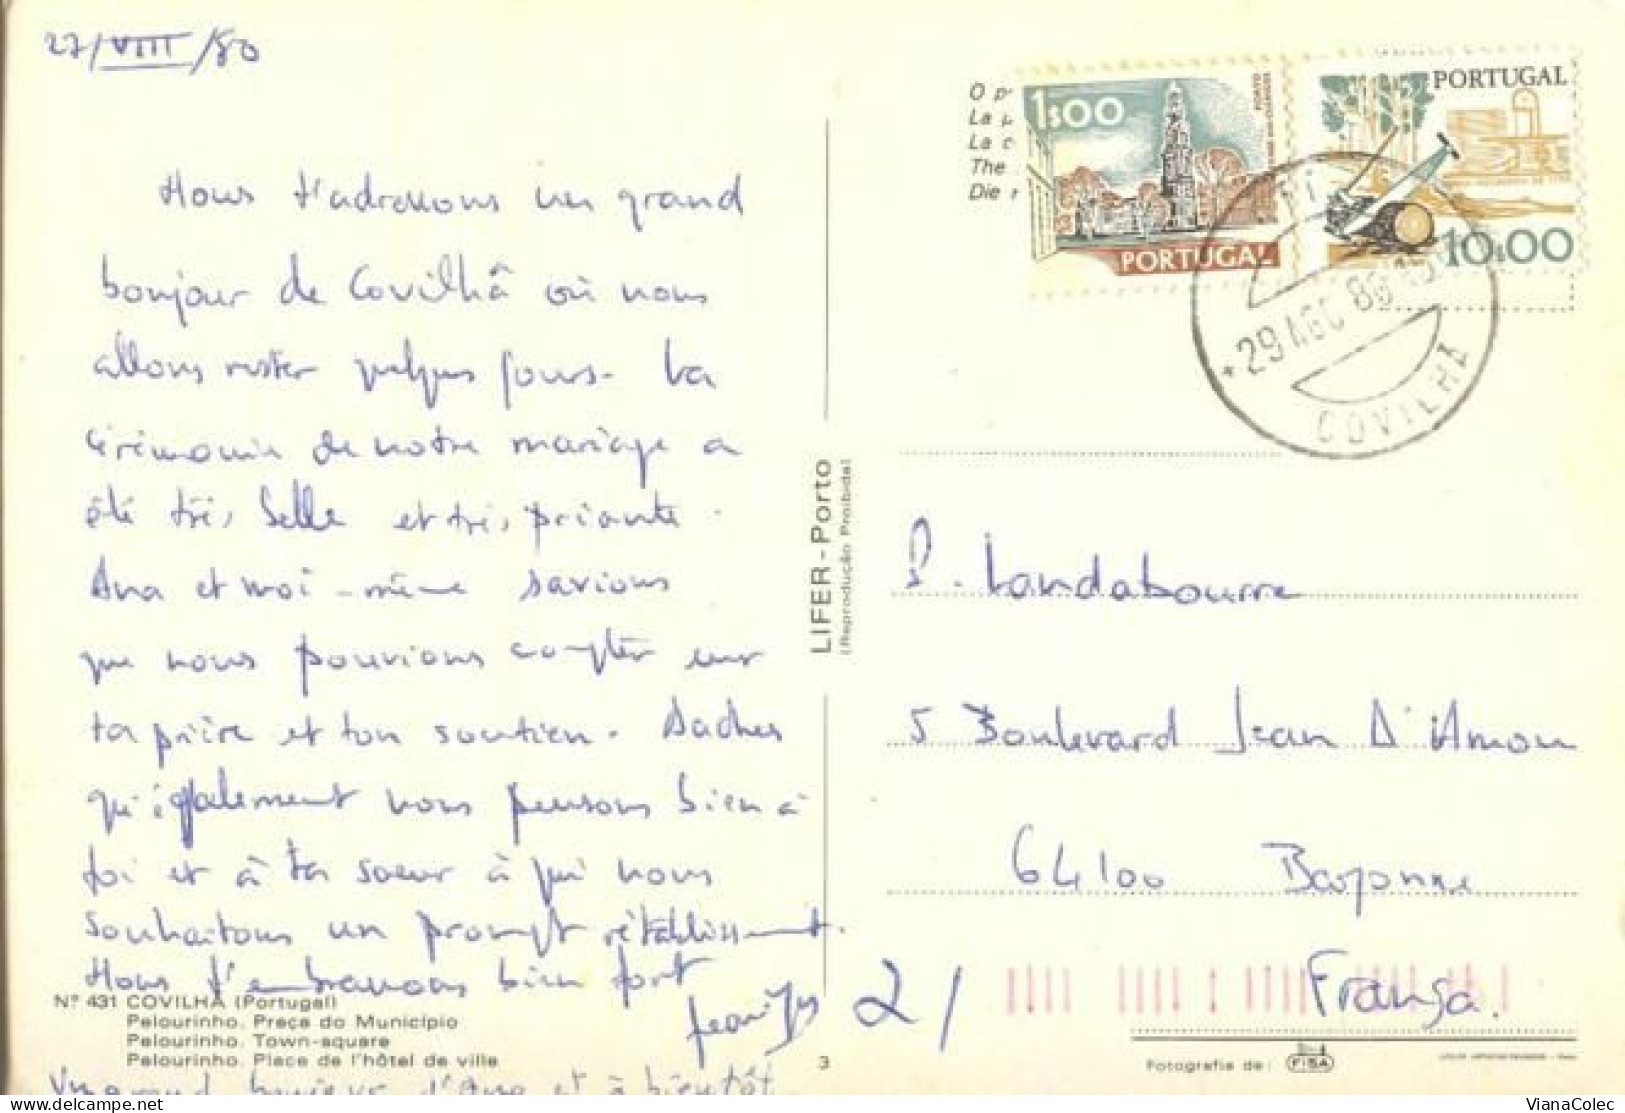 27/VIII/80
Nous t'adressons un grand
bonjour de Covilhã où nous
allons rester quelques jours. La
cérémonie de notre mariage a
été très belle et très priante.
Ana et moi-même savions
que nous pouvions compter sur
ta prière et ton soutien. Saches
qu'également nous pensons bien à
toi et à ta soeur à qui nous
souhaitons un prompt rétablissement.
Nous t'embrassons bien fort
Nº 431 COVILHÃ (Portugal)
Pelourinho. Praça do Município
Pelourinho. Town-square
Pelourinho. Place de l'hôtel de ville
Un grand bonjour d'Ana et à bientôt
LIFER-Porto
(Reprodução Proibida)
3
O p
La
La c
The
Die
1$00
PORTUGAL
PORTUGAL
10$00
29 AGO 80
COVILHÃ
P. Landabourre
5 Boulevard Jean D'Amou
64100 Bayonne
França.
21
Fotografia de: FISA
VianaColec